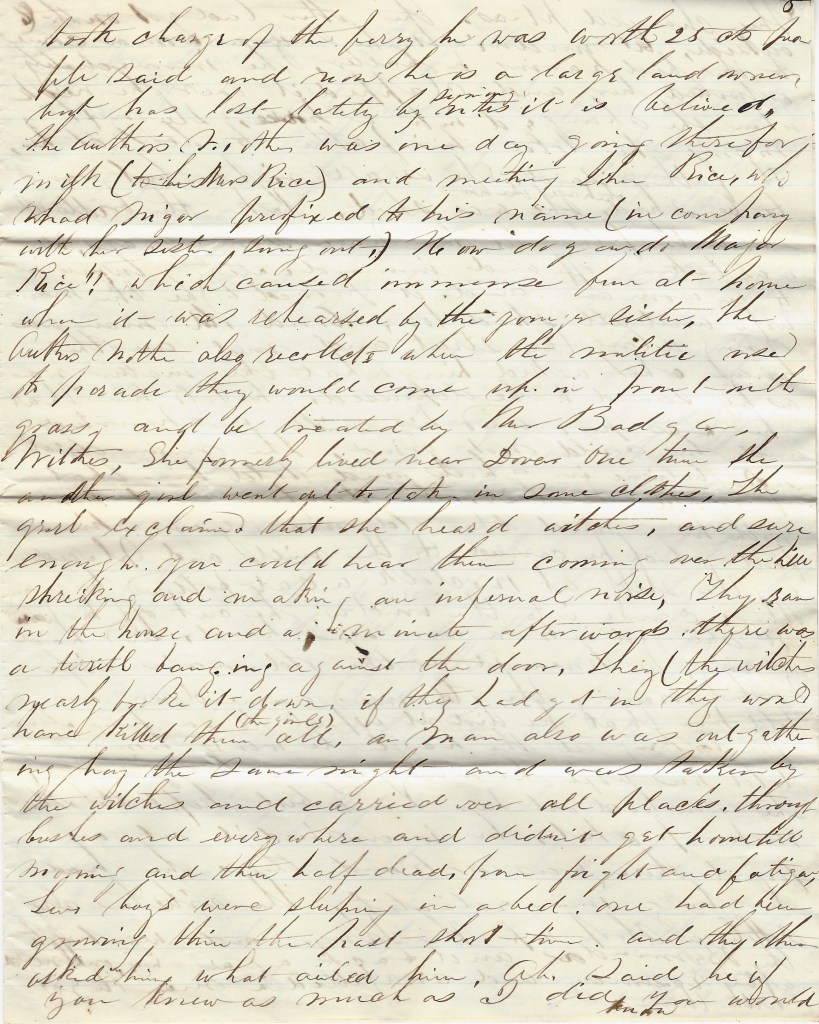 took charge of the ferry he was worth 25 cts peo
ple said and now he is a large land owner,
but has lost lately by signing notes it is believed,
The Authors Mother was one day going there for
milk (to his Mrs Rice) and meeting John Rice, who
had prefixed to his name (in company
with her sister sung out,) "How do you do Major
Rice"! which caused immense fun at home
when it was rehearsed by the younger sister, The
Authors Mothe also recollects when the militie used
to parade they would come up in front on the
grass, and be treated by Mr Badger,
Witches, She formerly lived near Dover One time she
another girl went out to take in some clothes, The
girl exclaimed that she heard witches, and sure
enough you could hear them coming over the hill
shreiking and making an infernal noise, They ran
in the house and a minute afterwords there was
a terribl banging against the door, They (the witches
nearly broke it down, if they had got in they would
have killed them (the girls) all, a man also was out gather
ing hay the same night and was taken by
the witches and carried over all places, through
bushes and everywhere and didn't get home till
morning and then half dead, from fright and fatigue,
Two boys were sleeping in a bed. one had been
growing thin the past short time. and the other
asked him what ailed him, Ah, said he if
you knew as much as I did you would
know